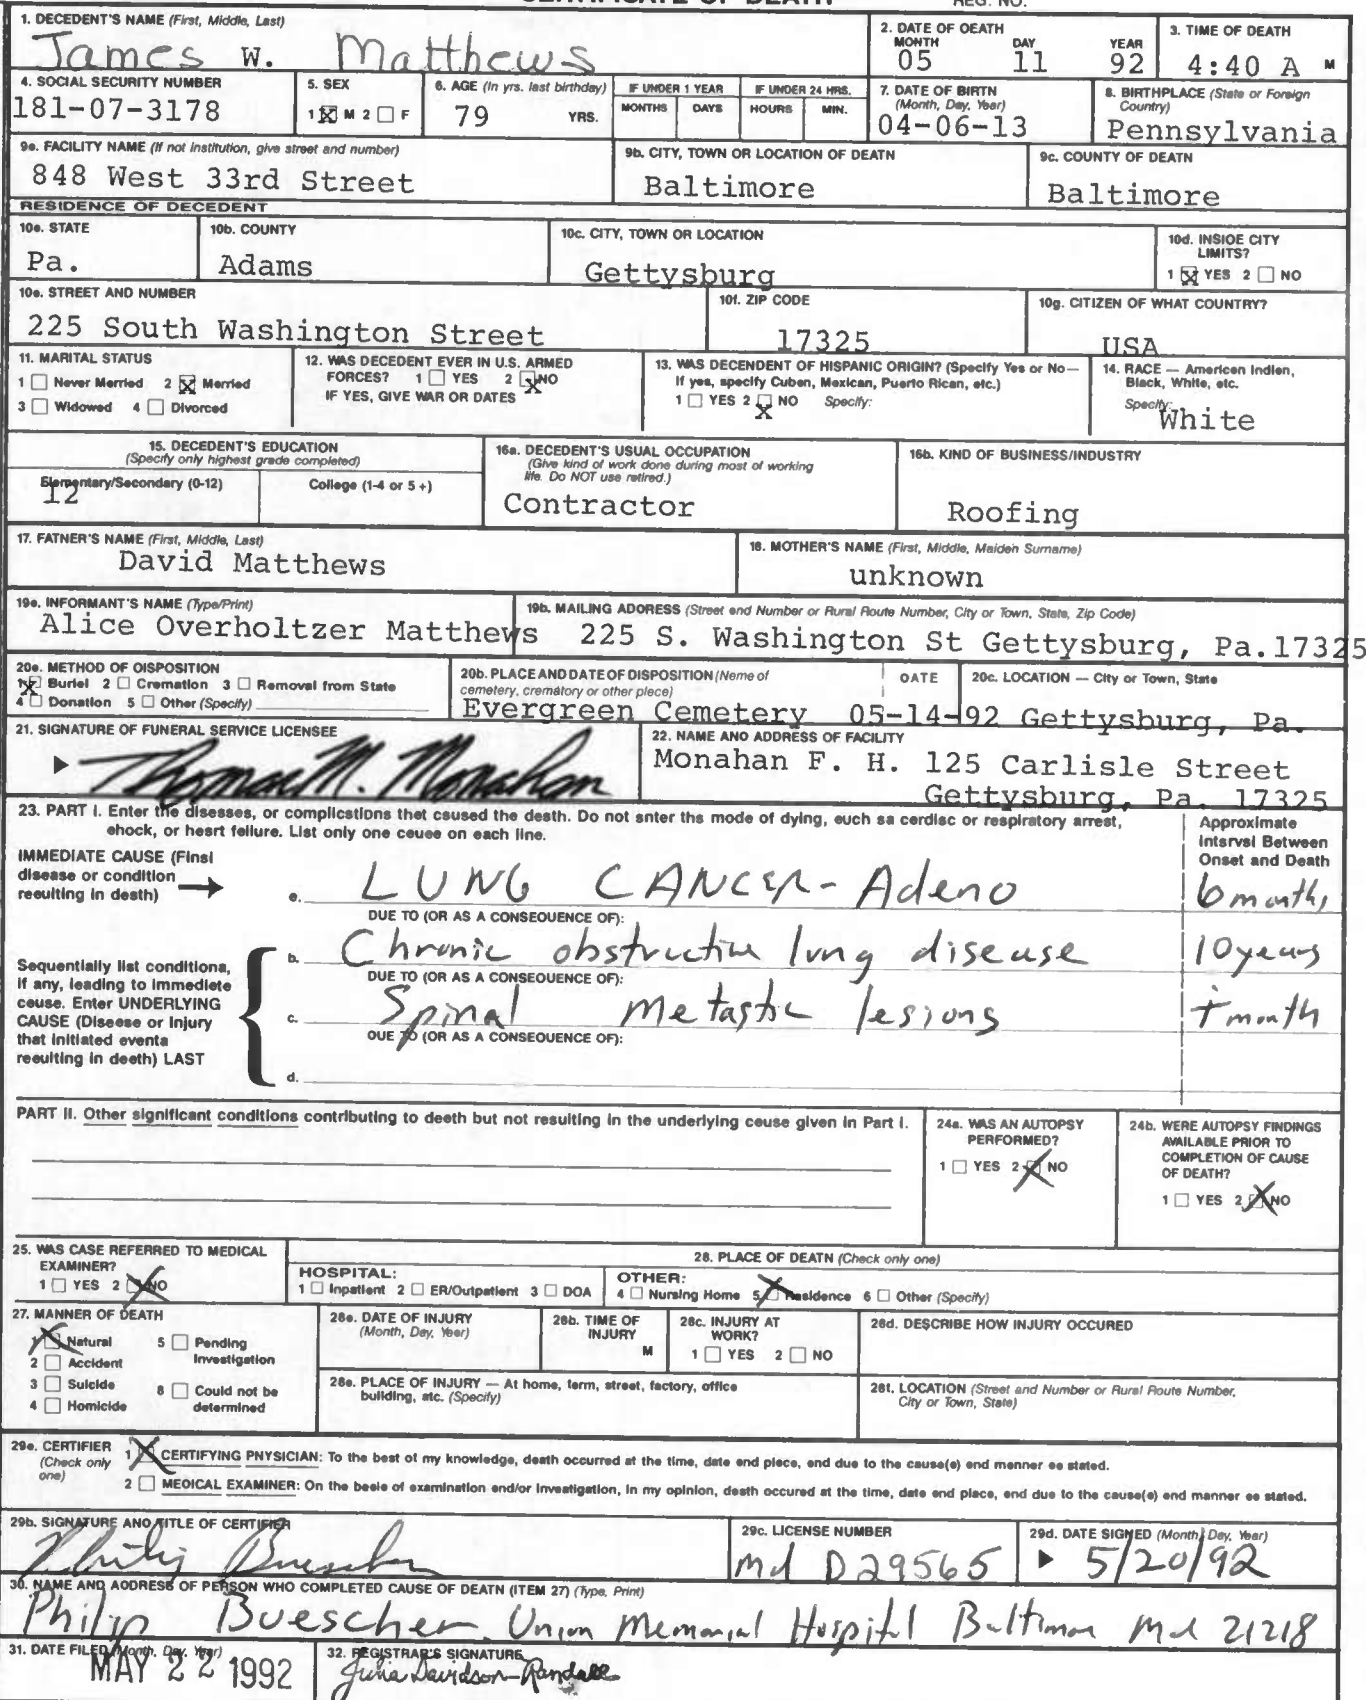 CERTIFICATE OF DEATH REG. NO.
1. DECEDENT'S NAME (First, Middle, Last)
James W. Matthews
2. DATE OF DEATH
MONTH DAY YEAR
05 11 92
3. TIME OF DEATH
4:40 A M
4. SOCIAL SECURITY NUMBER
181-07-3178
5. SEX
1 ☒ M 2 ☐ F
6. AGE (In yrs. last birthday)
79 YRS.
IF UNDER 1 YEAR
MONTHS DAYS
IF UNDER 24 HRS.
HOURS MIN.
7. DATE OF BIRTH
(Month, Day, Year)
04-06-13
8. BIRTHPLACE (State or Foreign
Country)
Pennsylvania
9a. FACILITY NAME (If not institution, give street and number)
848 West 33rd Street
9b. CITY, TOWN OR LOCATION OF DEATH
Baltimore
9c. COUNTY OF DEATH
Baltimore
RESIDENCE OF DECEDENT
10a. STATE
Pa.
10b. COUNTY
Adams
10c. CITY, TOWN OR LOCATION
Gettysburg
10d. INSIDE CITY
LIMITS?
1 ☒ YES 2 ☐ NO
10e. STREET AND NUMBER
225 South Washington Street
10f. ZIP CODE
17325
10g. CITIZEN OF WHAT COUNTRY?
USA
11. MARITAL STATUS
1 ☐ Never Married 2 ☒ Married
3 ☐ Widowed 4 ☐ Divorced
12. WAS DECEDENT EVER IN U.S. ARMED
FORCES? 1 ☐ YES 2 ☒ NO
IF YES, GIVE WAR OR DATES
13. WAS DECENDENT OF HISPANIC ORIGIN? (Specify Yes or No—
If yes, specify Cuban, Mexican, Puerto Rican, etc.)
1 ☐ YES 2 ☒ NO Specify:
14. RACE — American Indian,
Black, White, etc.
Specify:
White
15. DECEDENT'S EDUCATION
(Specify only highest grade completed)
Elementary/Secondary (0-12) College (1-4 or 5+)
12
16a. DECEDENT'S USUAL OCCUPATION
(Give kind of work done during most of working
life. Do NOT use retired.)
Contractor
16b. KIND OF BUSINESS/INDUSTRY
Roofing
17. FATHER'S NAME (First, Middle, Last)
David Matthews
18. MOTHER'S NAME (First, Middle, Maiden Surname)
unknown
19a. INFORMANT'S NAME (Type/Print)
Alice Overholtzer Matthews
19b. MAILING ADDRESS (Street and Number or Rural Route Number, City or Town, State, Zip Code)
225 S. Washington St Gettysburg, Pa.17325
20a. METHOD OF DISPOSITION
1 ☒ Burial 2 ☐ Cremation 3 ☐ Removal from State
4 ☐ Donation 5 ☐ Other (Specify)
20b. PLACE AND DATE OF DISPOSITION (Name of
cemetery, crematory or other place)
DATE
Evergreen Cemetery 05-14-92
20c. LOCATION — City or Town, State
Gettysburg, Pa.
21. SIGNATURE OF FUNERAL SERVICE LICENSEE
Thomas M. Monahan
22. NAME AND ADDRESS OF FACILITY
Monahan F. H. 125 Carlisle Street
Gettysburg, Pa. 17325
23. PART I. Enter the diseases, or complications that caused the death. Do not enter the mode of dying, such as cardiac or respiratory arrest,
shock, or heart failure. List only one cause on each line.
Approximate
Interval Between
Onset and Death
IMMEDIATE CAUSE (Final
disease or condition
resulting in death)
a. LUNG CANCER - Adeno 6 months
DUE TO (OR AS A CONSEQUENCE OF):
b. Chronic obstructive lung disease 10 years
DUE TO (OR AS A CONSEQUENCE OF):
c. Spinal metastic lesions month
DUE TO (OR AS A CONSEQUENCE OF):
d.
Sequentially list conditions,
if any, leading to immediate
cause. Enter UNDERLYING
CAUSE (Disease or injury
that initiated events
resulting in death) LAST
PART II. Other significant conditions contributing to death but not resulting in the underlying cause given in Part I.
24a. WAS AN AUTOPSY
PERFORMED?
1 ☐ YES 2 ☒ NO
24b. WERE AUTOPSY FINDINGS
AVAILABLE PRIOR TO
COMPLETION OF CAUSE
OF DEATH?
1 ☐ YES 2 ☒ NO
25. WAS CASE REFERRED TO MEDICAL
EXAMINER?
1 ☐ YES 2 ☒ NO
26. PLACE OF DEATH (Check only one)
HOSPITAL:
1 ☐ Inpatient 2 ☐ ER/Outpatient 3 ☐ DOA
OTHER:
4 ☐ Nursing Home 5 ☒ Residence 6 ☐ Other (Specify)
27. MANNER OF DEATH
1 ☒ Natural 5 ☐ Pending
Investigation
2 ☐ Accident
3 ☐ Suicide 8 ☐ Could not be
determined
4 ☐ Homicide
28a. DATE OF INJURY
(Month, Day, Year)
28b. TIME OF
INJURY
M
28c. INJURY AT
WORK?
1 ☐ YES 2 ☐ NO
28d. DESCRIBE HOW INJURY OCCURED
28e. PLACE OF INJURY — At home, farm, street, factory, office
building, etc. (Specify)
28f. LOCATION (Street and Number or Rural Route Number,
City or Town, State)
29a. CERTIFIER
(Check only
one)
1 ☒ CERTIFYING PHYSICIAN: To the best of my knowledge, death occurred at the time, date and place, and due to the cause(s) and manner as stated.
2 ☐ MEDICAL EXAMINER: On the basis of examination and/or investigation, in my opinion, death occured at the time, date and place, and due to the cause(s) and manner as stated.
29b. SIGNATURE AND TITLE OF CERTIFIER
Philip Buescher
29c. LICENSE NUMBER
Md D29565
29d. DATE SIGNED (Month, Day, Year)
5/20/92
30. NAME AND ADDRESS OF PERSON WHO COMPLETED CAUSE OF DEATH (ITEM 27) (Type, Print)
Philip Buescher Union Memorial Hospital Baltimore Md 21218
31. DATE FILED (Month, Day, Year)
MAY 22 1992
32. REGISTRAR'S SIGNATURE
Julia Davidson-Randall